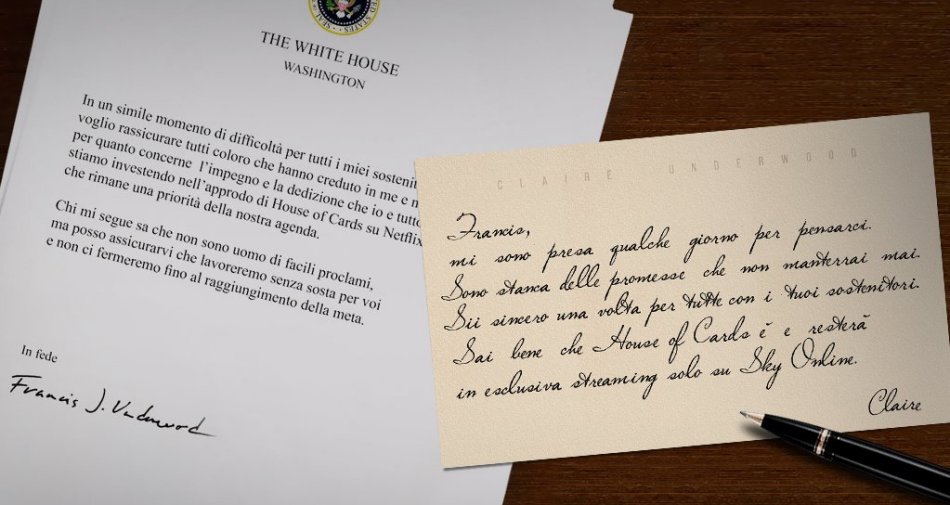 THE WHITE HOUSE
WASHINGTON
In un simile momento di difficoltà per tutti i miei sostenit
voglio rassicurare tutti coloro che hanno creduto in me e
per quanto concerne l'impegno e la dedizione che io e tutto
stiamo investendo nell'approdo di House of Cards su Netflix
che rimane una priorità della nostra agenda.
Chi mi segue sa che non sono uomo di facili proclami,
ma posso assicurarvi che lavoreremo senza sosta per voi
e non ci fermeremo fino al raggiungimento della meta.
In fede
Francis J. Underwood
CLAIRE UNDERWOOD
Francis,
mi sono presa qualche giorno per pensarci.
Sono stanca delle promesse che non manterrai mai.
Sii sincero una volta per tutte con i tuoi sostenitori.
Sai bene che House of Cards è e resterà
in esclusiva streaming solo su Sky Online.
Claire